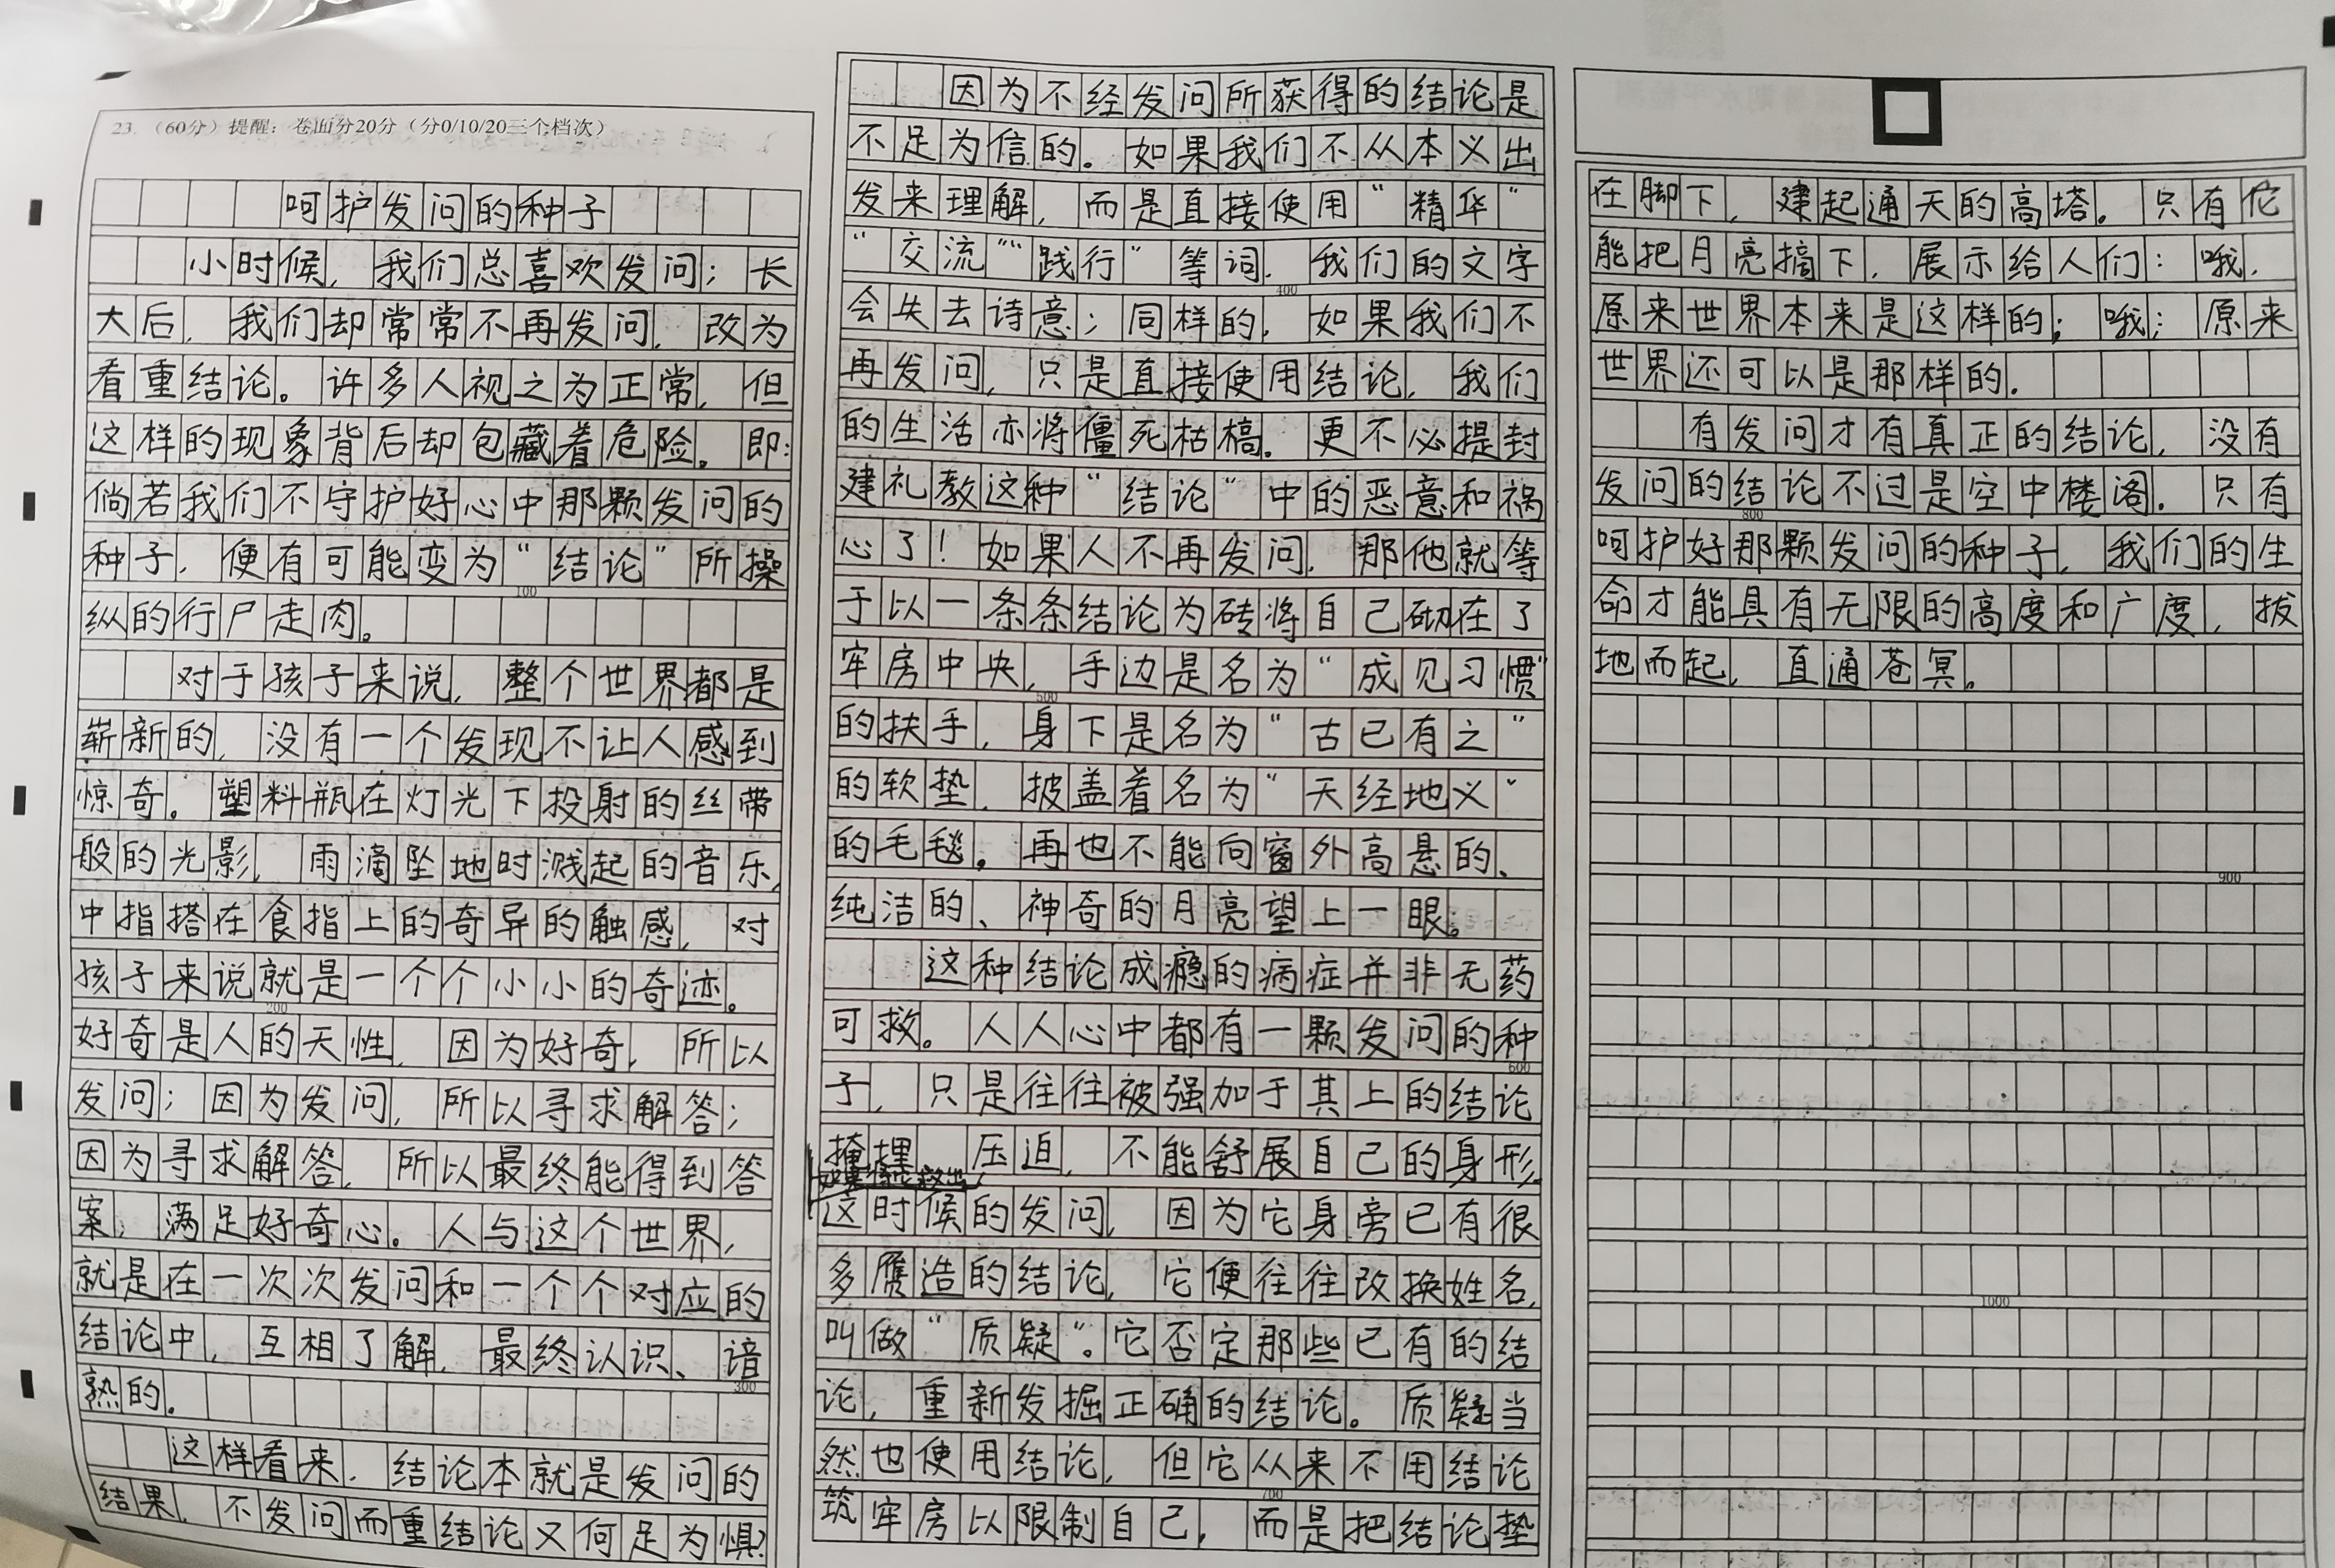 23.（60分）提醒：卷面分20分（分0/10/20三个档次）
呵护发问的种子
小时候，我们总喜欢发问；长
大后，我们却常常不再发问，改为
看重结论。许多人视之为正常，但
这样的现象背后却包藏着危险。即：
倘若我们不守护好心中那颗发问的
种子，便有可能变为“结论”所操
100
纵的行尸走肉。
对于孩子来说，整个世界都是
崭新的，没有一个发现不让人感到
惊奇。塑料瓶在灯光下投射的丝带
般的光影，雨滴坠地时溅起的音乐，
中指搭在食指上的奇异的触感，对
孩子来说就是一个个小小的奇迹。
200
好奇是人的天性，因为好奇，所以
发问；因为发问，所以寻求解答；
因为寻求解答，所以最终能得到答
案，满足好奇心。人与这个世界，
就是在一次次发问和一个个对应的
结论中，互相了解，最终认识、谙
300
熟的。
这样看来，结论本就是发问的
结果，不发问而重结论又何足为惧？
因为不经发问所获得的结论是
不足为信的。如果我们不从本义出
发来理解，而是直接使用“精华”
“交流”“践行”等词，我们的文字
400
会失去诗意；同样的，如果我们不
再发问，只是直接使用结论，我们
的生活亦将僵死枯槁。更不必提封
建礼教这种“结论”中的恶意和祸
心了！如果人不再发问，那他就等
于以一条条结论为砖将自己砌在了
牢房中央，手边是名为“成见习惯”
500
的扶手，身下是名为“古已有之”
的软垫，披盖着名为“天经地义”
的毛毯。再也不能向窗外高悬的、
纯洁的、神奇的月亮望上一眼。
这种结论成瘾的病症并非无药
可救。人人心中都有一颗发问的种
600
子，只是往往被强加于其上的结论
掩埋、压迫，不能舒展自己的身形。
这时候的发问，因为它身旁已有很
多赝造的结论，它便往往改换姓名，
叫做“质疑”。它否定那些已有的结
论，重新发掘正确的结论。质疑当
然也使用结论，但它从来不用结论
700
筑牢房以限制自己，而是把结论垫
在脚下，建起通天的高塔。只有它
能把月亮摘下，展示给人们：哦，
原来世界本来是这样的；哦；原来
世界还可以是那样的。
有发问才有真正的结论，没有
发问的结论不过是空中楼阁。只有
800
呵护好那颗发问的种子，我们的生
命才能具有无限的高度和广度，拔
地而起，直通苍冥。
900
1000